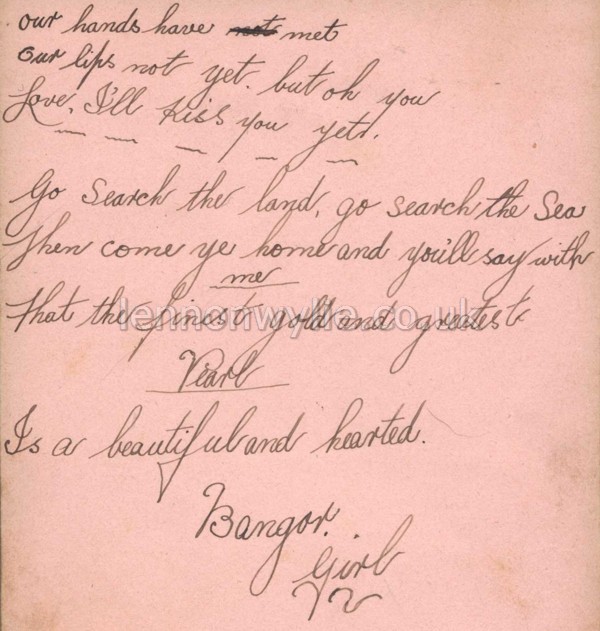 our hands have not met
our lips not yet. but oh you
Love, I'll kiss you yet.
Go Search the land, go search the Sea
Then come ye home and you'll say with
me
That the finest gold and greatest
Pearl
Is a beautiful and hearted.
Bangor.
Girl
lennonwylie.co.uk